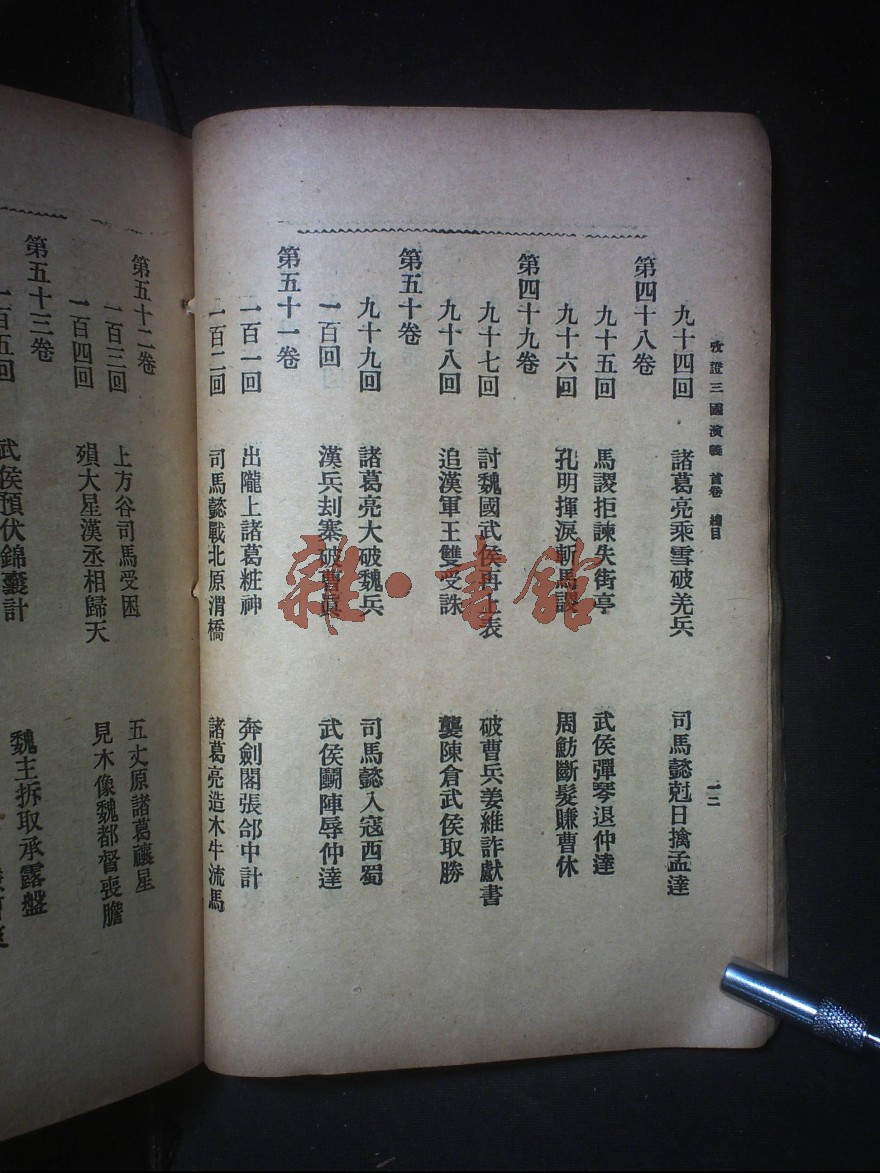 攷證三國演義 首卷 總目 一二
九十四回 諸葛亮乘雪破羌兵 司馬懿尅日擒孟達
第四十八卷
九十五回 馬謖拒諫失街亭 武侯彈琴退仲達
九十六回 孔明揮淚斬馬謖 周魴斷髮賺曹休
第四十九卷
九十七回 討魏國武侯再上表 破曹兵姜維詐獻書
九十八回 追漢軍王雙受誅 襲陳倉武侯取勝
第五十卷
九十九回 諸葛亮大破魏兵 司馬懿入寇西蜀
一百回 漢兵刦寨破曹眞 武侯鬭陣辱仲達
第五十一卷
一百一回 出隴上諸葛粧神 奔劍閣張郃中計
一百二回 司馬懿戰北原渭橋 諸葛亮造木牛流馬
第五十二卷
一百三回 上方谷司馬受困 五丈原諸葛禳星
一百四回 殞大星漢丞相歸天 見木像魏都督喪膽
第五十三卷
一百五回 武侯預伏錦囊計 魏主拆取承露盤
雜·書館